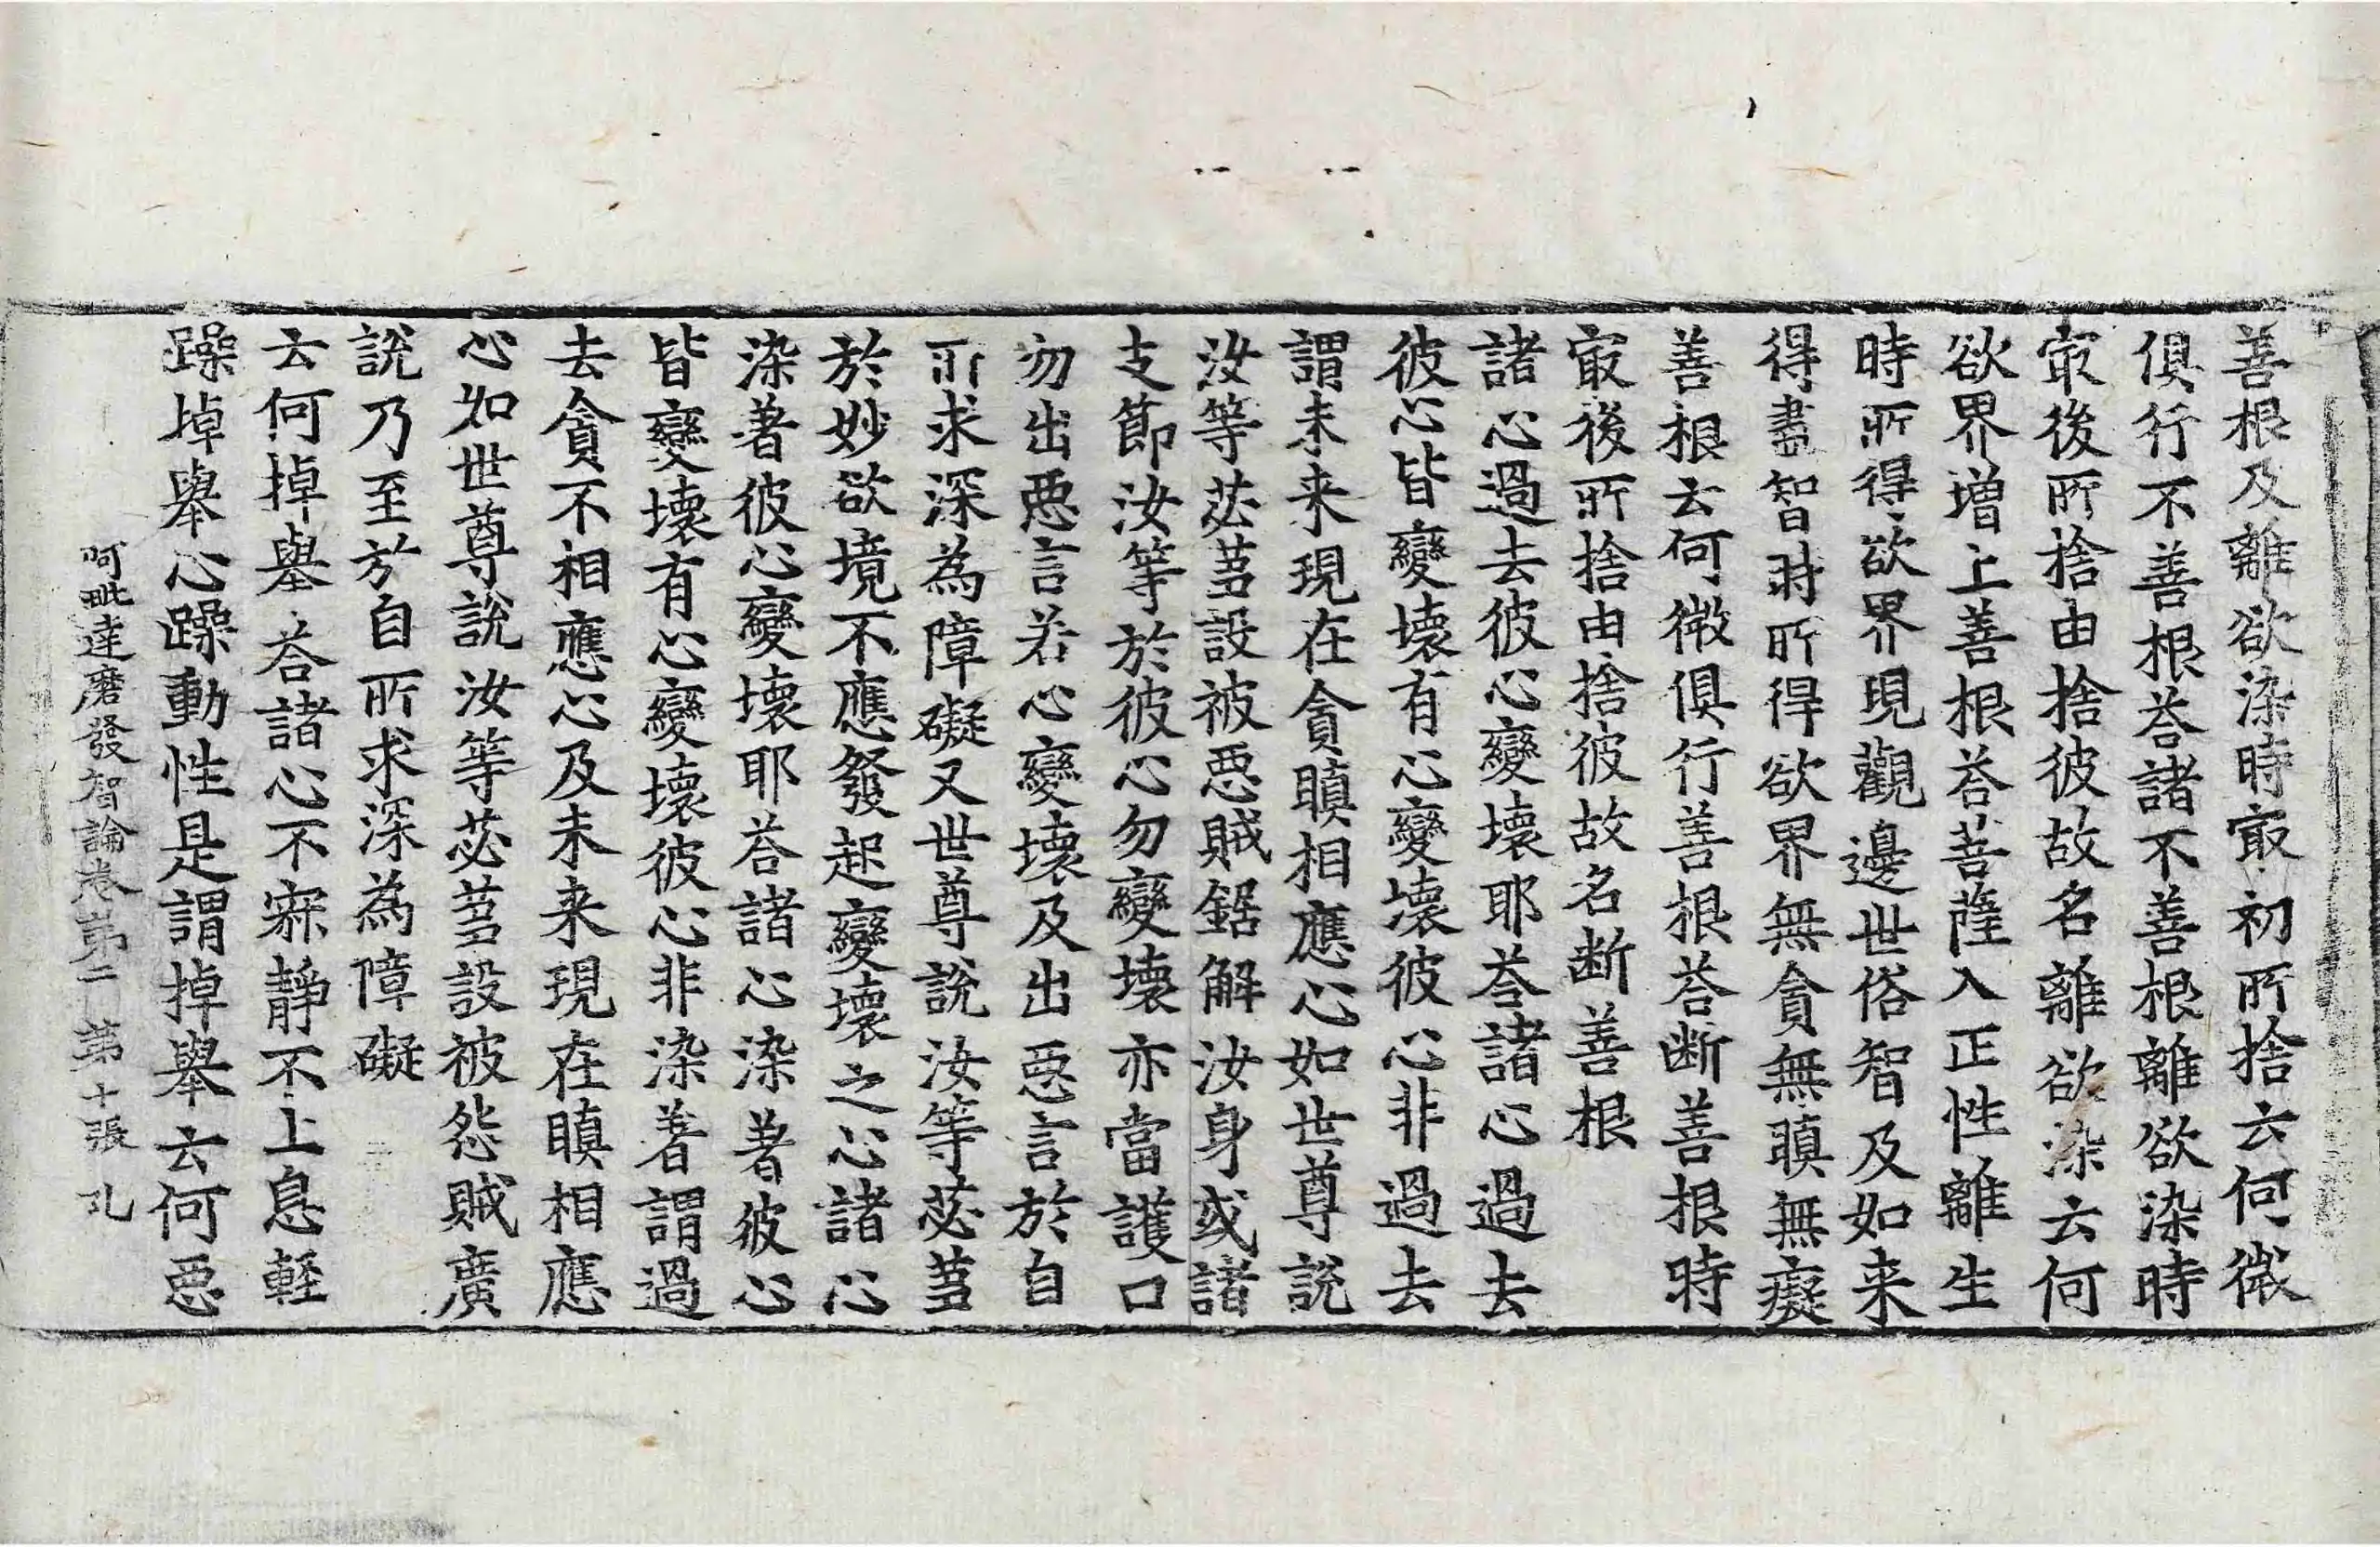 善根及離欲染時㝡初所捨云何微
俱行不善根荅諸不善根離欲染時
㝡後所捨由捨彼故名離欲染云何
欲界增上善根荅菩薩入正性離生
時所得欲界現觀邊世俗智及如来
得盡智時所得欲界無貪無瞋無癡
善根云何微俱行善根荅断善根時
㝡後所捨由捨彼故名断善根
諸心過去彼心變壞耶荅諸心過去
彼心皆變壞有心變壞彼心非過去
謂未来現在貪瞋相應心如世尊說
汝等苾芻設被惡賊鋸解汝身或諸
支節汝等於彼心勿變壞亦當護口
勿出惡言若心變壞及出惡言於自
所求深為障礙又世尊說汝等苾芻
於妙欲境不應發起變壞之心諸心
染著彼心變壞耶荅諸心染著彼心
皆變壞有心變壞彼心非染著謂過
去貪不相應心及未来現在瞋相應
心如世尊說汝等苾芻設被怨賊廣
說乃至於自所求深為障礙
云何掉舉荅諸心不寂靜不止息輕
躁掉舉心躁動性是謂掉舉云何惡
阿毗達磨發智論卷第二 第十張 孔